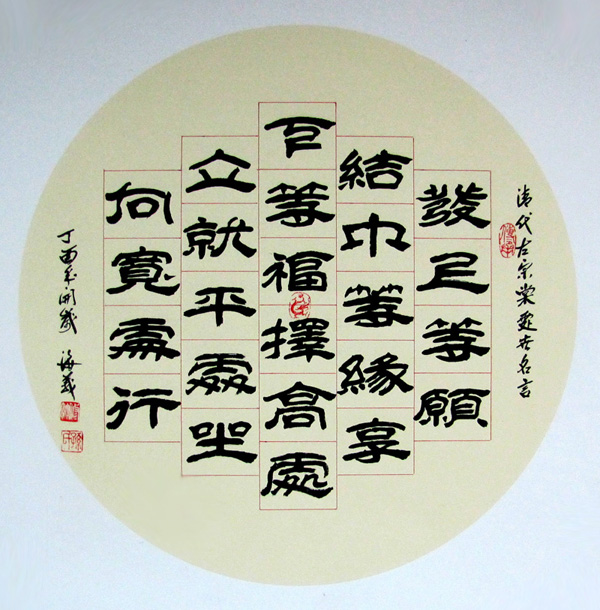 清代左宗棠處世名言
發上等願
結中等緣享
下等福擇高處
立就平處坐
向寬處行
丁酉年開歲 海